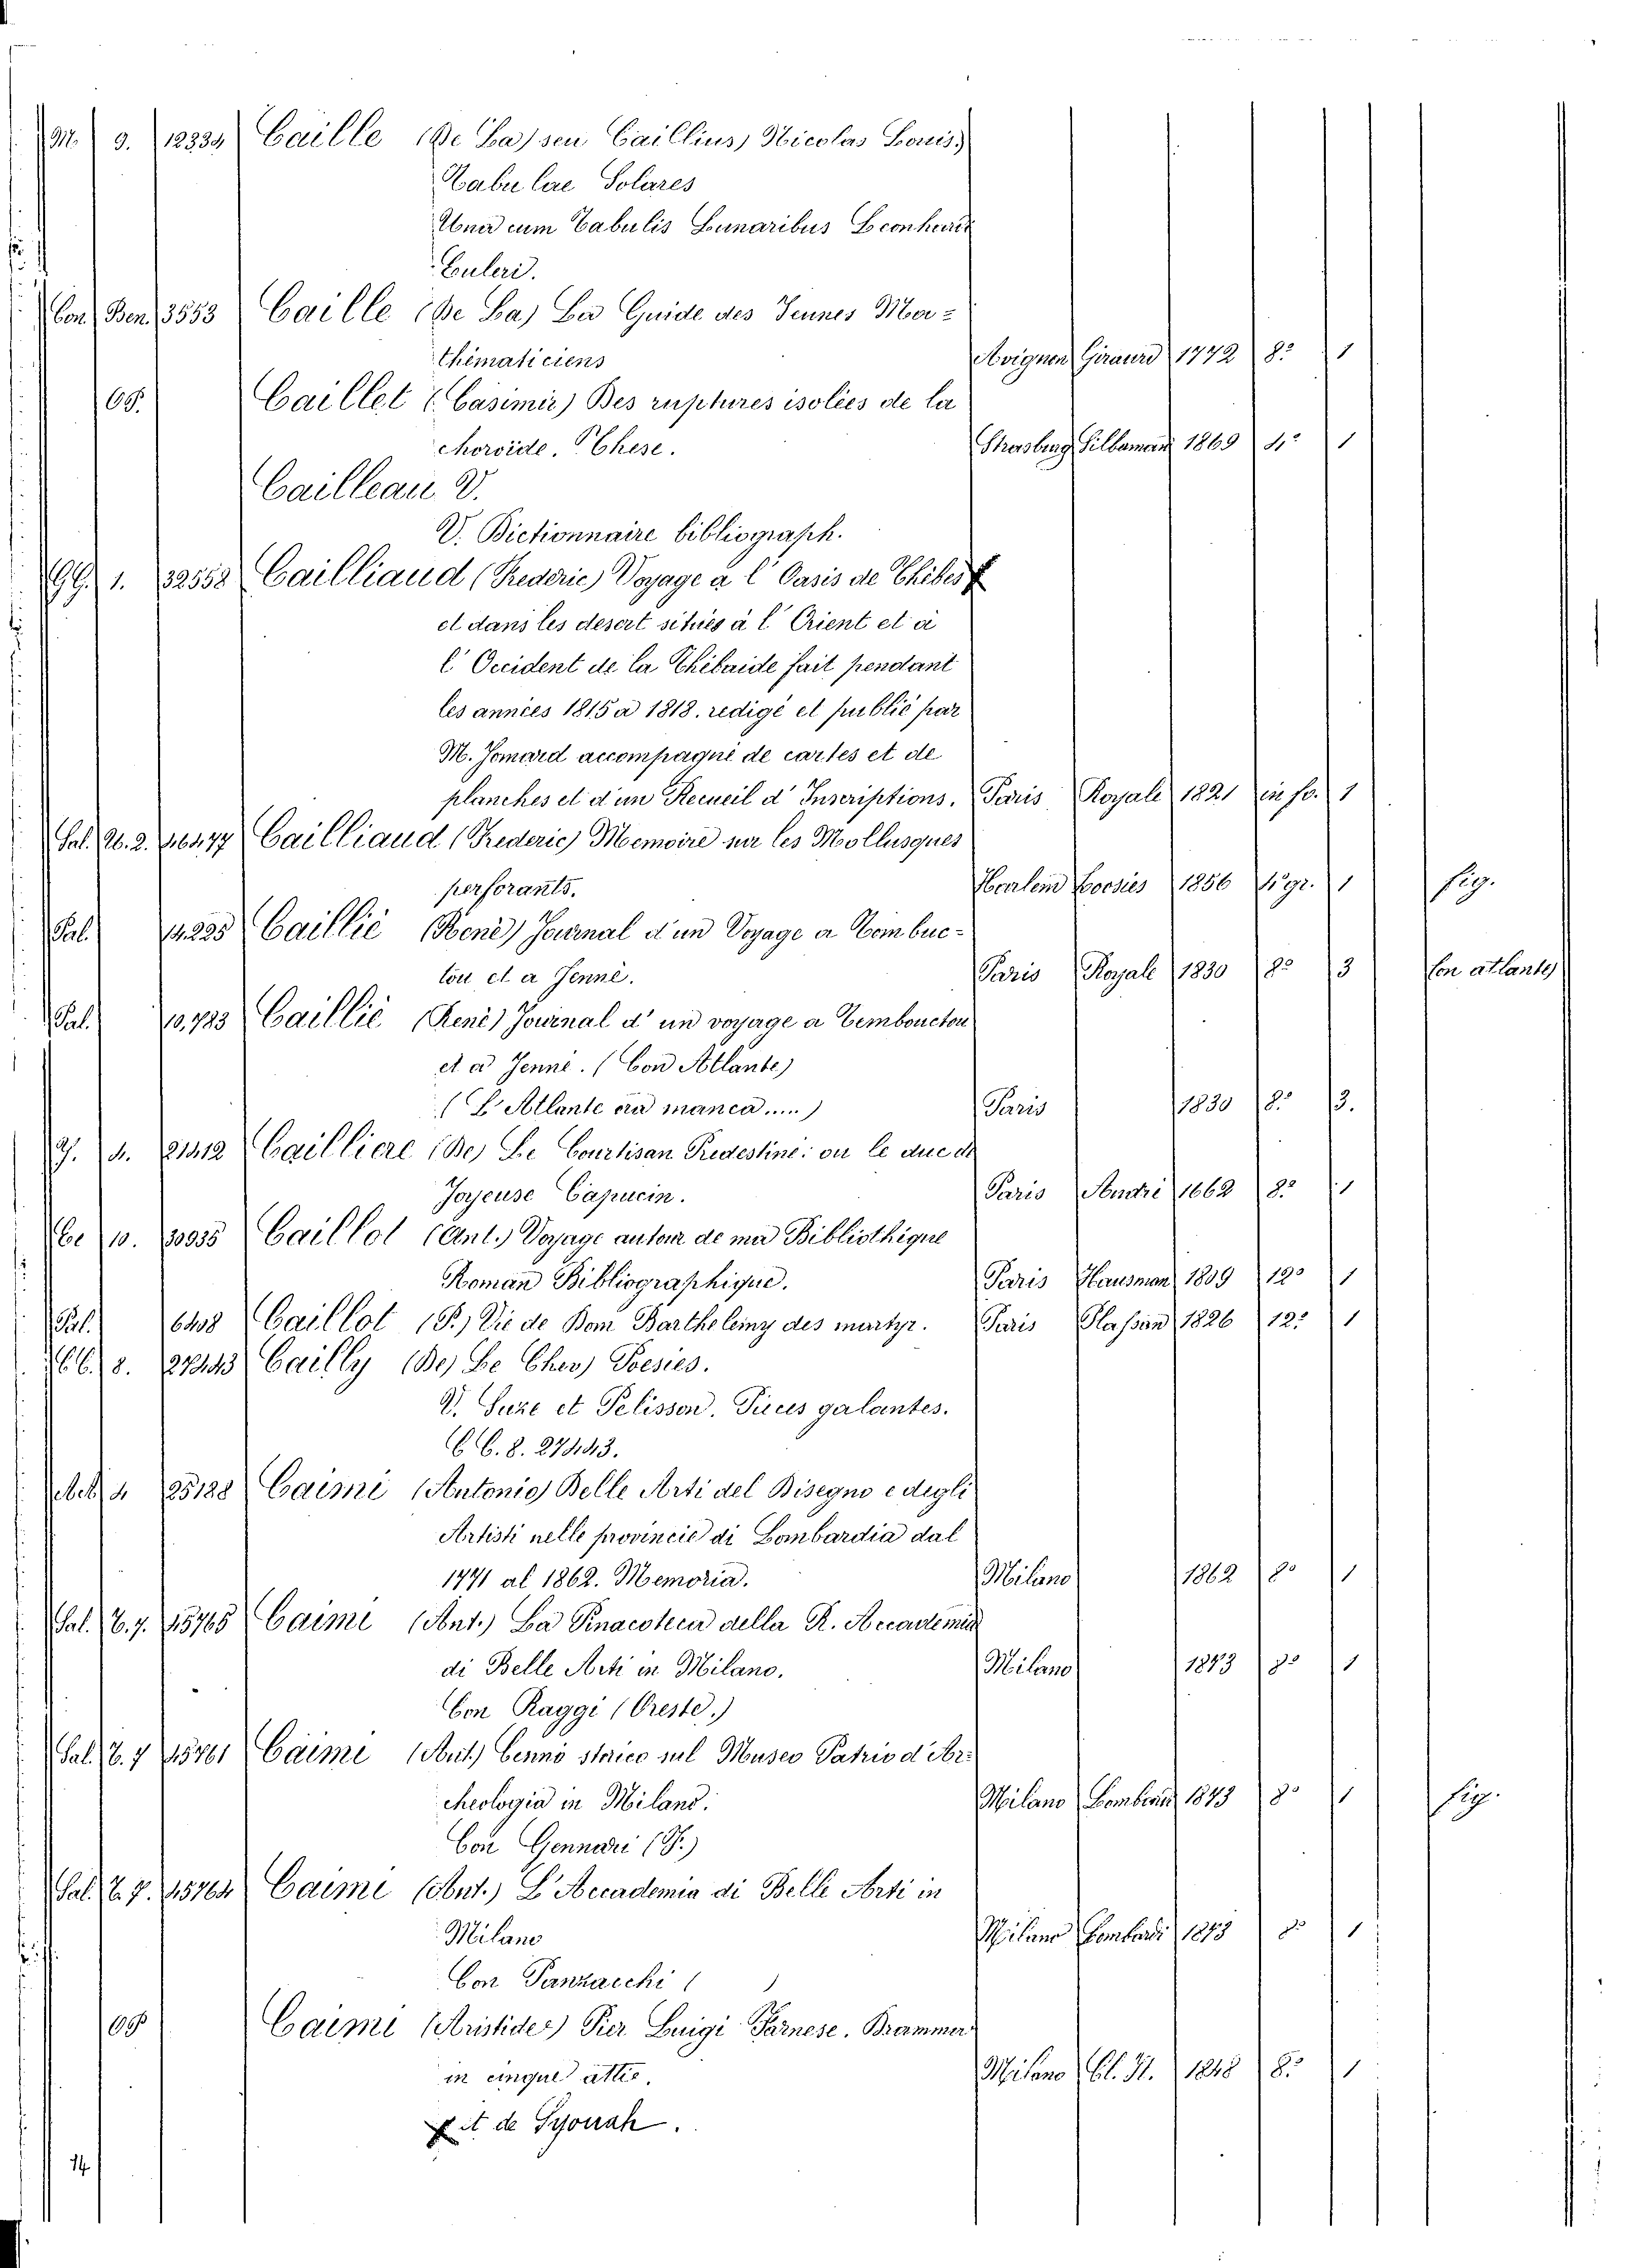 M. 9. 12334 Caille (De La) seu Caillius, Nicolas Louis,
Tabulae Solares
Una cum Tabulis Lunaribus Leonhardi
Euleri.
Con Ben. 3553 Caille (De La) La Guide des Jeunes Ma=
thématiciens Avignon Giraurd 1772 8º 1
69. Caillet (Casimir) Des ruptures isolées de la
choroide. Thèse. Strasburg Silbamann 1869 4º 1
Cailleau V.
V. Dictionnaire bibliograph.
GG. 1. 32558 Cailliaud (Frederic) Voyage a l'Oasis de Thibes *
et dans les desert situés à l'Orient et à
l'Occident de la Thibaide fait pendant
les années 1815 a 1818. redigé et publié par
M. Jomard accompagné de cartes et de
planches et d'un Recueil d'Inscriptions. Paris Royale 1821 in fo. 1
Sal. 2. 16477 Cailliaud (Frederic) Memoire sur les Mollusques
perforants. Harlem Loosies 1856 4º gr. 1 fig.
Sal. 14.225 Caillié (René) Journal d'un Voyage a Tombuc-
tou et a Jenné. Paris Royale 1830 8º 3 (con atlante)
Sal. 10.723 Caillié (René) Journal d'un voyage a Temboucton
et a Jenné. (Con Atlante)
(L'Atlante ora manca.....) Paris 1830 8º 3.
4. 21412 Cailliere (De) Le Courtisan Predestiné: ou le duc de
Joyeuse Capucin. Paris André 1662 8º 1
10. 30935 Caillot (Ant.) Voyage autour de ma Bibliothique
Roman Bibliographique. Paris Hausman 1809 12º 1
Sal. 6408 Caillot (P.) Vie de Dom Bartheleiny des martyr. Paris Plassan 1826 12º 1
CC. 8. 27443 Cailly (De) Le Chev) Poesies.
V. Suze et Pelisson. Pieces galantes.
CC. 8. 27443.
4 25128 Caimi (Antonio) Belle Arti del Disegno e degli
Artisti nelle provincie di Lombardia dal
1771 al 1862. Memoria. Milano 1862 8º 1
Sal. 6.7. 15765 Caimi (Ant.) La Pinacoteca della R. Accademia
di Belle Arti in Milano. Milano 1873 8º 1
Con Raggi (Oreste.)
Sal. 6.7 15761 Caimi (Ant.) Cenno storico sul Museo Patrio d'Ar-
cheologia in Milano. Milano Lombardi 1873 8º 1 fig.
Con Gennari (F.)
Sal. 6.7. 15764 Caimi (Ant.) L'Accademia di Belle Arti in
Milano Milano Lombardi 1873 8º 1
Con Panzacchi ( )
69 Caimi (Aristide) Pier Luigi Farnese. Dramma
in cinque atti. Milano Cl. It. 1848 8º 1
* et de Syouah.
14